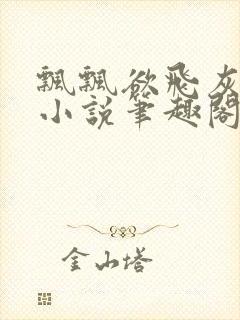 飄飄欲飛灰
小說筆趣閣
金山塔